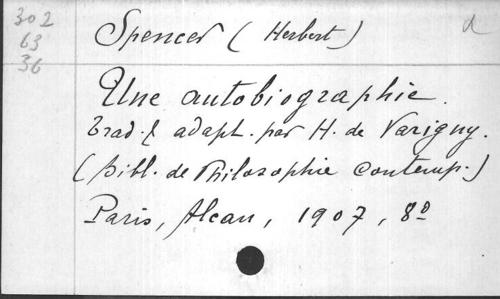 302
63
36
Spencer (Herbert)
d
Une autobiographie.
Trad. & adapt. par H. de Varigny.
(Bibl. de Philosophie contemp.)
Paris, Alcan, 1907, 8º